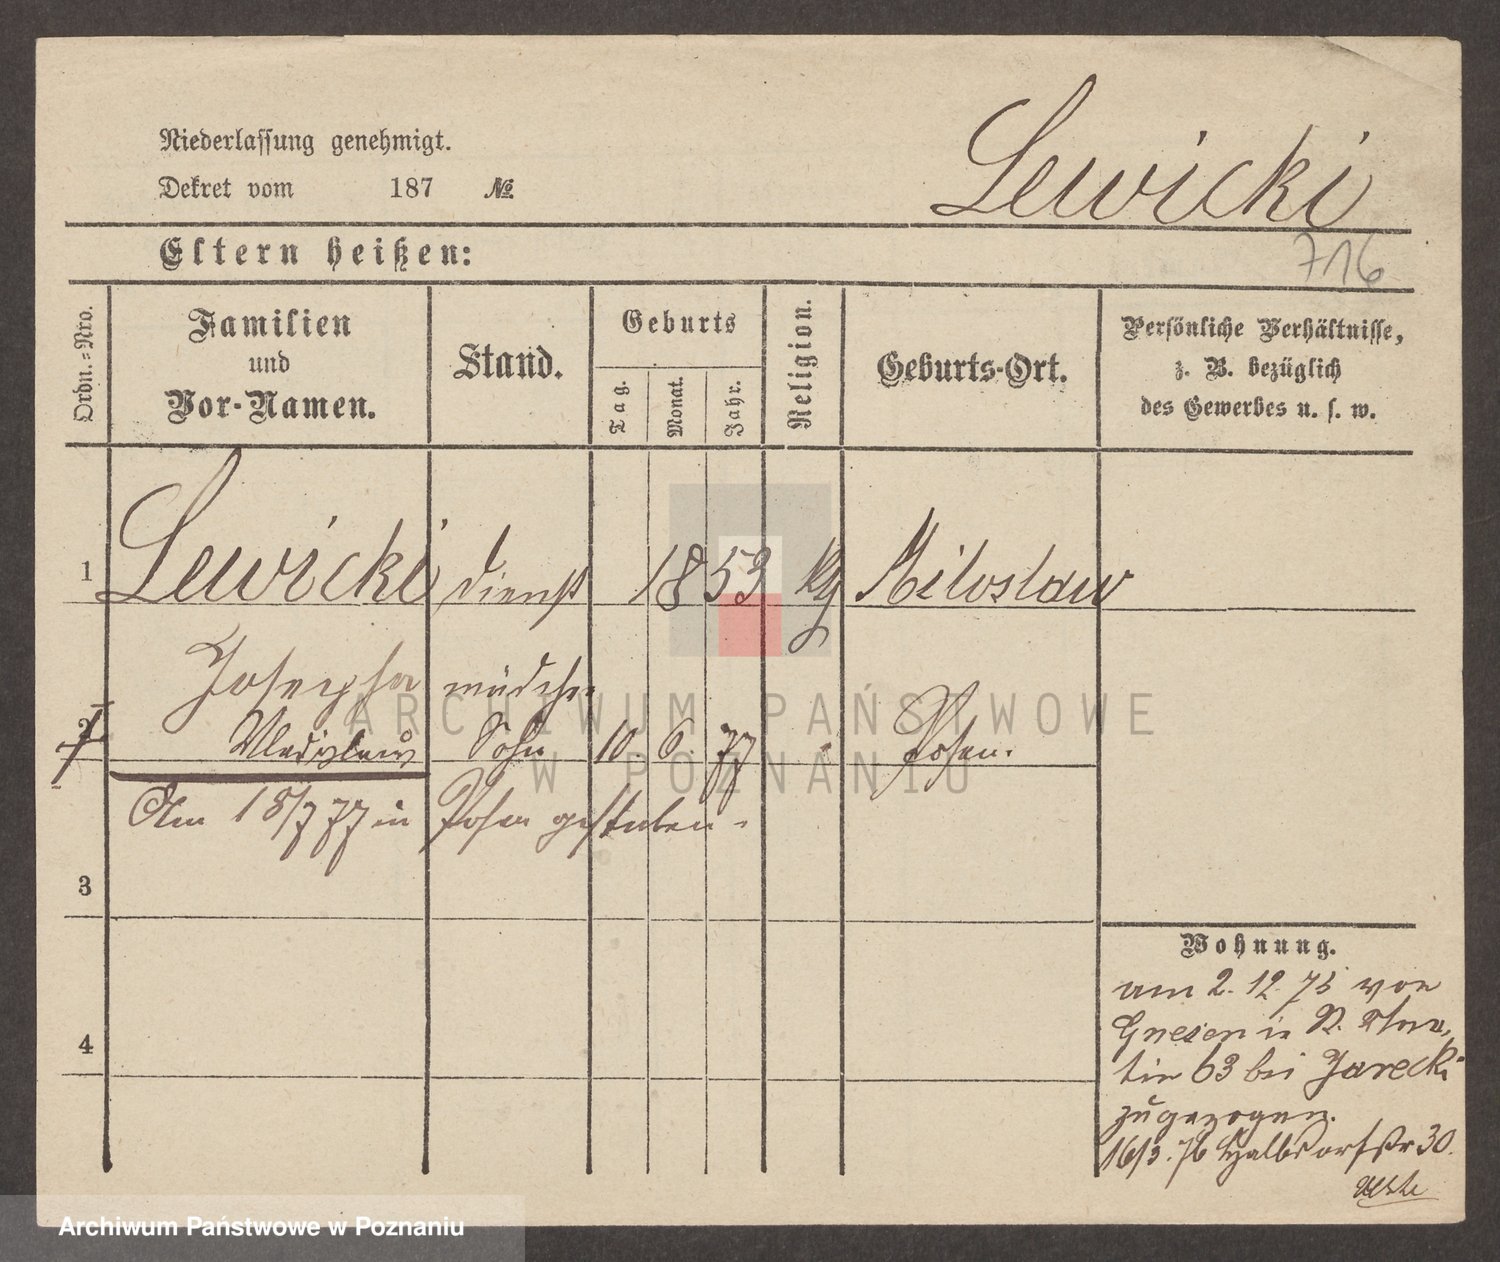 Niederlassung genehmigt.
Dekret vom 187 №
Lewicki
Eltern heißen:
716
Ordn.=Nro.
Familien
und
Vor-Namen.
Stand.
Geburts
Tag.
Monat.
Jahr.
Religion.
Geburts-Ort.
Persönliche Verhältnisse,
z. B. bezüglich
des Gewerbes u. s. w.
1 Lewicki dienst 1853 Miloslaw
Josepha mädchen
2 Wladislaw Sohn 10. 6. 77 Posen.
Am 18/7 77 in Posen gestorben.
3
4
Wohnung.
am 2. 12. 75 von
Gnesen in
tin 63 bei Jarecki
zugezogen.
16/3. 76 Halbdorfstr 30.
ARCHIWUM PAŃSTWOWE
W POZNANIU
Archiwum Państwowe w Poznaniu